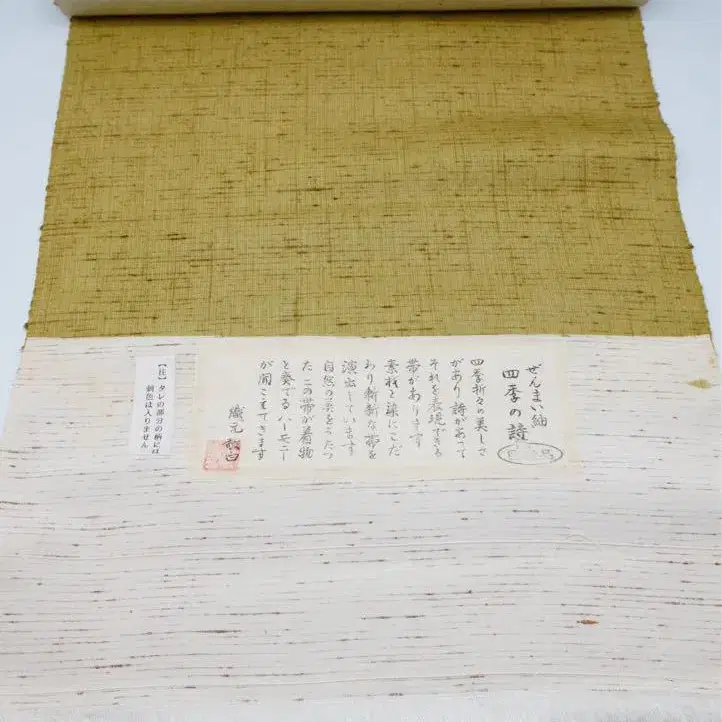 ぜんまい紬
四季の譜
四季折々の美しさ
があり詩があって
それを表現できる
帯があります
素材と染にこだ
わり斬新な帯を
演出しています
自然の糸をこだつ
たこの帯が着物
と奏でるハーモニー
が聞こえてきます
織元
【注】タレの部分の柄には
刺色は入りません